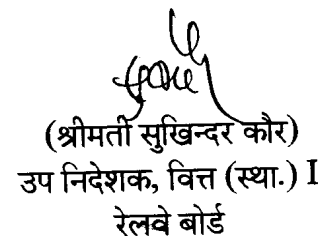 (श्रीमती सुखिन्दर कौर)
उप निदेशक, वित्त (स्था.) I
रेलवे बोर्ड